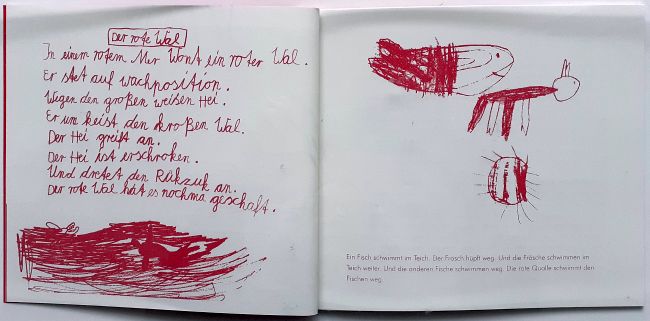 Der rote Wal
In einem rotem Mer Wont ein roter Wal.
Er stet auf wachposition.
Wegen den großen weißen Hei.
Er um keist den kroßen Wal.
Der Hei greift an.
Der Hei ist erschroken.
Und dretet den Rükzuk an.
Der rote Wal hat es nochma geschaft.
Ein Fisch schwimmt im Teich. Der Frosch hüpft weg. Und die Frösche schwimmen im
Teich weiter. Und die anderen Fische schwimmen weg. Die rote Qualle schwimmt den
Fischen weg.